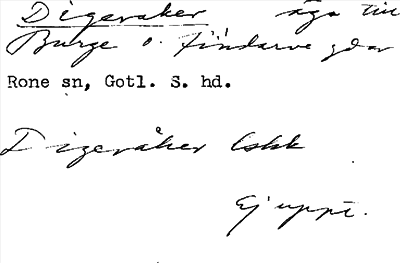 Digeraker äga till
Burge o. Findarve gdar
Rone sn, Gotl. S. hd.
Digeråker Iskk
Ej uppt.